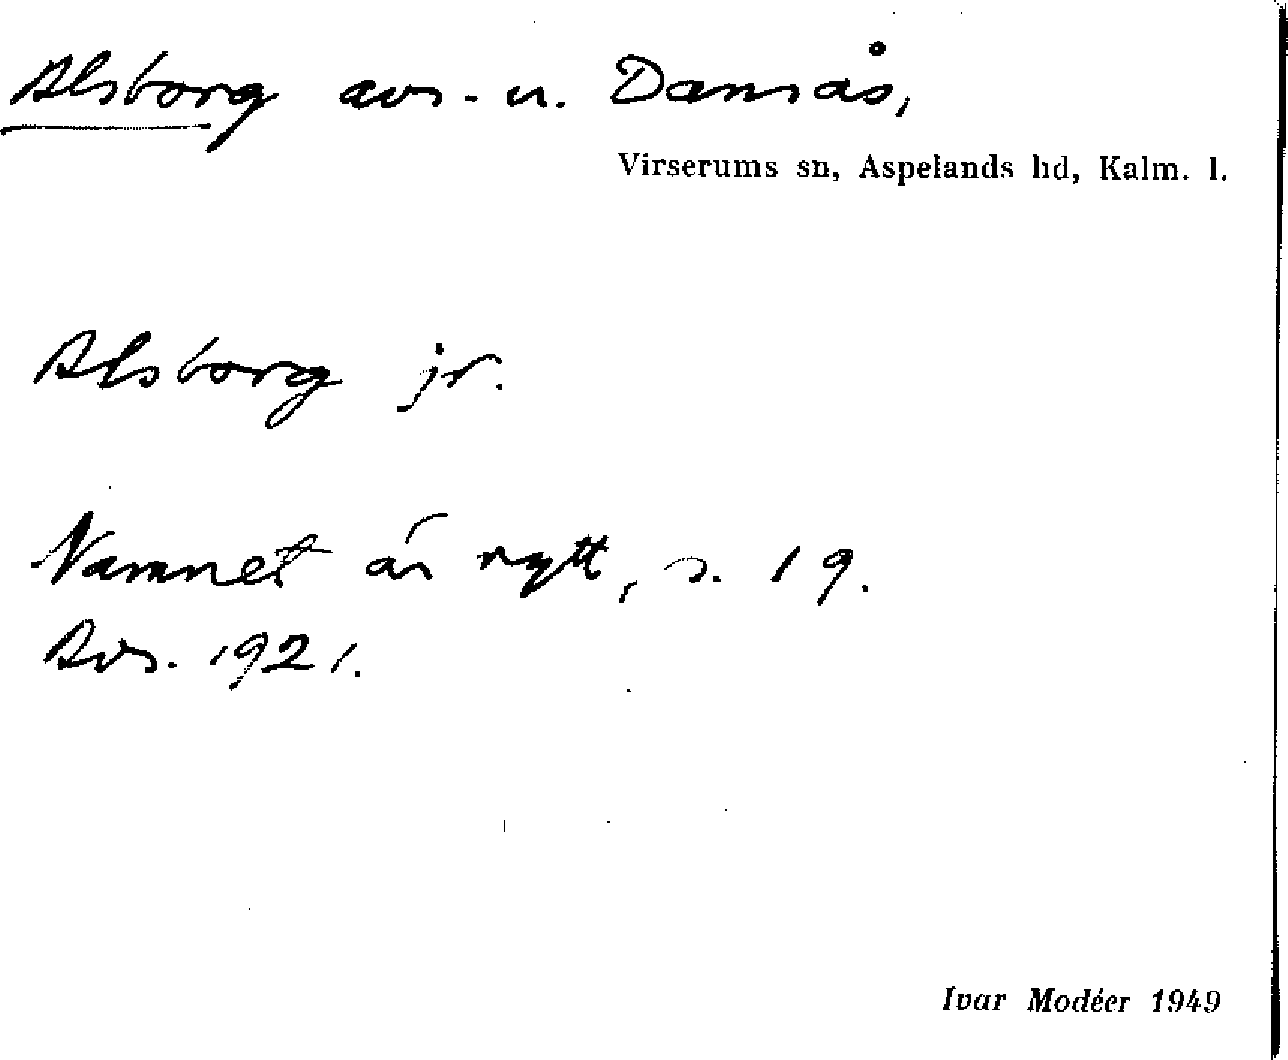 Alsborg avs. u. Damsås,
Virserums sn, Aspelands hd, Kalm. l.
Alsborg jr.
Namnet är nytt, s. 19.
Avs. 1921.
Ivar Modéer 1949